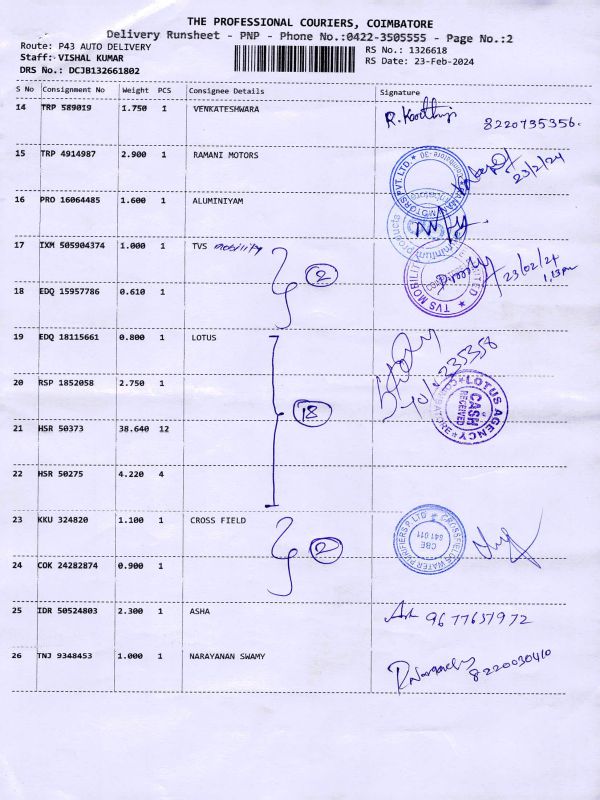 THE PROFESSIONAL COURIERS, COIMBATORE
Delivery Runsheet - PNP - Phone No.:0422-3505555 - Page No.:2
Route: P43 AUTO DELIVERY RS No.: 1326618
Staff: VISHAL KUMAR RS Date: 23-Feb-2024
DRS No.: DCJB132661802
S No Consignment No Weight PCS Consignee Details Signature
14 TRP 589019 1.750 1 VENKATESHWARA R. Karthi 8220735356.
15 TRP 4914987 2.900 1 RAMANI MOTORS 23/2/24
16 PRO 16064485 1.600 1 ALUMINIYAM
17 IXM 505904374 1.000 1 TVS mobility 23/02/24
2 1.13 pm
TVS MOBILITY
18 EDQ 15957786 0.610 1
19 EDQ 18115661 0.800 1 LOTUS
20 RSP 1852058 2.750 1
18 LOTUS AGENCY
CASH
RECEIVED
COIMBATORE
21 HSR 50373 38.640 12
22 HSR 50275 4.220 4
23 KKU 324820 1.100 1 CROSS FIELD
CROSSFIELDS WATER PURIFIERS P LTD
CBE
641 011
2
24 COK 24282874 0.900 1
25 IDR 50524803 2.300 1 ASHA 9677657972
26 TNJ 9348453 1.000 1 NARAYANAN SWAMY 8220030410